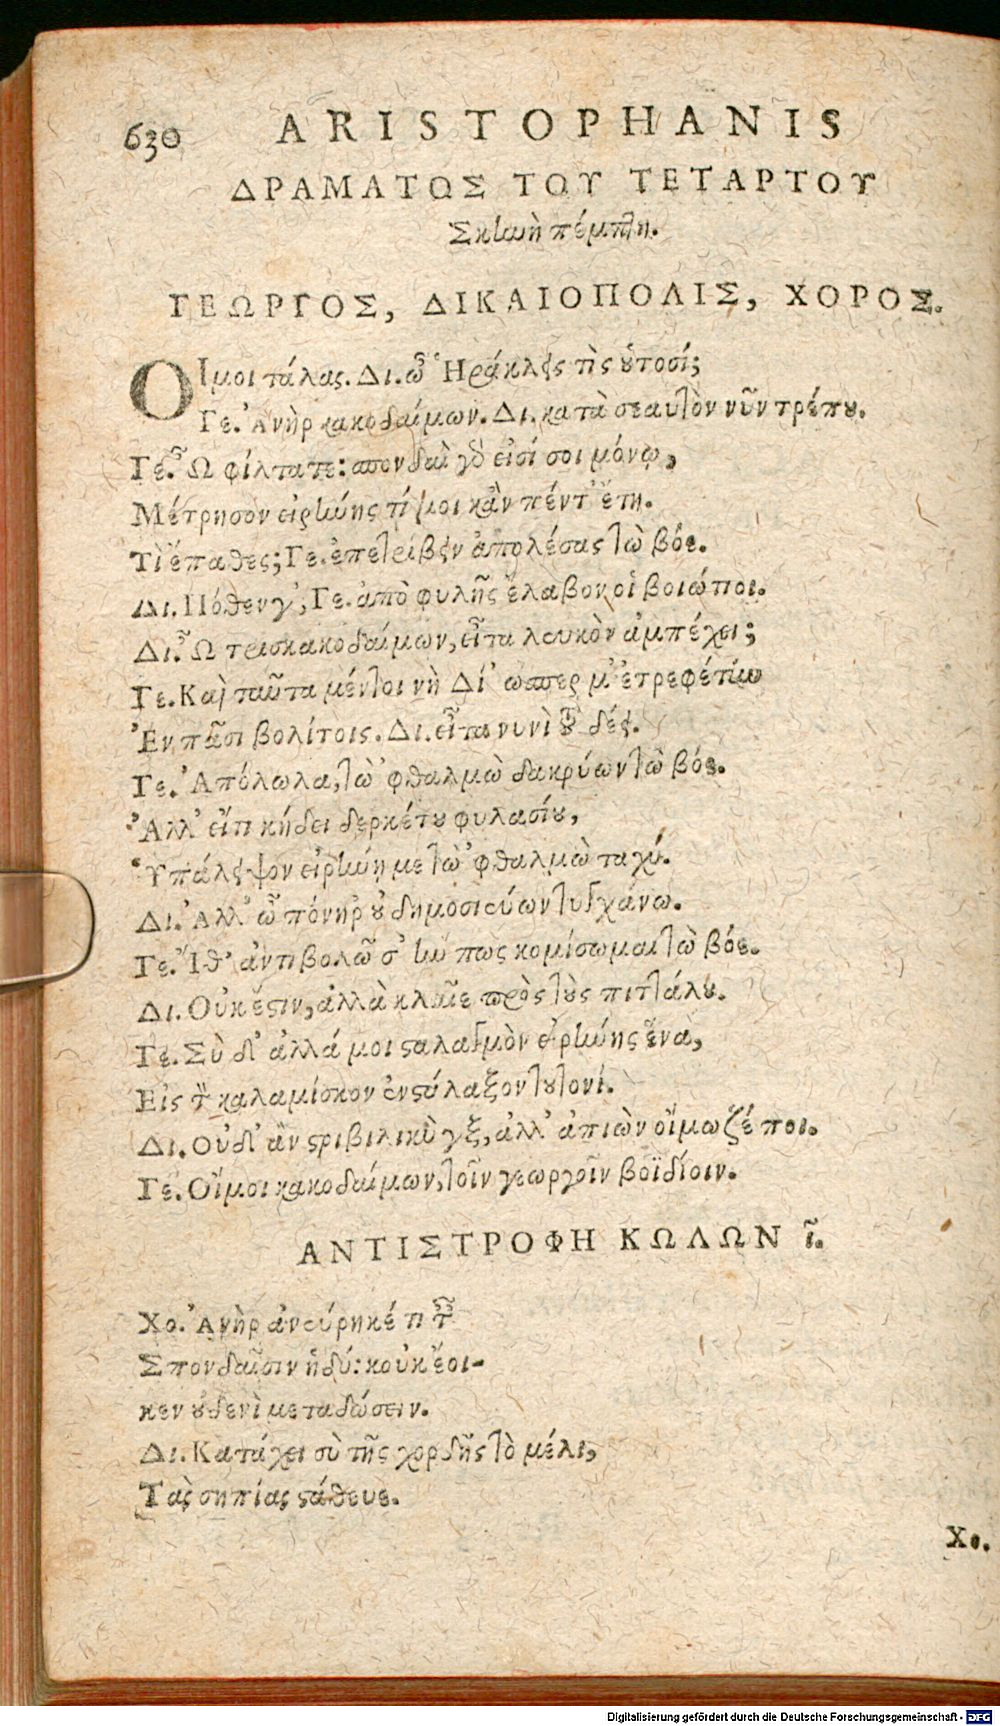 630 ARISTOPHANIS
ΔΡΑΜΑΤΟΣ ΤΟΥ ΤΕΤΑΡΤΟΥ
Σκηνὴ πέμπτη.
ΓΕΩΡΓΟΣ, ΔΙΚΑΙΟΠΟΛΙΣ, ΧΟΡΟΣ.
ΟΙμοι τάλας. Δι. ὦ Ἡράκλεις τὶς οὑτοσί;
Γε. Ἀνὴρ κακοδαίμων. Δι. κατὰ σεαυτὸν νῦν τρέπου.
Γε. Ὦ φίλτατε: σπονδαὶ γὰρ εἰσί σοι μόνῳ,
Μέτρησον εἰρήνης τί μοι κἂν πέντ' ἔτη.
Τὶ ἔπαθες; Γε. ἐπετρίβην ἀπολέσας τὼ βόε.
Δι. Πόθεν γ', Γε. ἀπὸ φυλῆς ἔλαβον οἱ βοιώτιοι.
Δι. Ὦ τρισκακοδαίμων, εἶτα λευκὸν ἀμπέχει;
Γε. Καὶ ταῦτα μέντοι νὴ Δί' ὥσπερ μ' ἐτρεφέτην
Ἐν πᾶσι βολίτοις. Δι. εἶτα νυνὶ τοῦ δέει.
Γε. Ἀπόλωλα, τὼ 'φθαλμὼ δακρύων τὼ βόε.
Ἀλλ' εἴπ κήδει δερκέτου φυλασίου,
Ὑπάλειψον εἰρήνῃ με τὼ 'φθαλμὼ ταχύ.
Δι. Ἀλλ' ὦ πόνηρ' οὐ δημοσιεύων τυγχάνω.
Γε. Ἴθ' ἀντιβολῶ σ' ἤν πως κομίσωμαι τὼ βόε.
Δι. Οὐκ ἔστιν, ἀλλὰ κλαῖε πρὸς τοὺς πιττάλου.
Γε. Σὺ δ' ἀλλά μοι σταλαγμὸν εἰρήνης ἕνα,
Εἰς τὸν καλαμίσκον ἐνστάλαξον τουτονί.
Δι. Οὐδ' ἂν στριβιλικὺγξ, ἀλλ' ἀπιὼν οἴμωζέ ποι.
Γε. Οἴμοι κακοδαίμων, τοῖν γεωργοῖν βοϊδίοιν.
ΑΝΤΙΣΤΡΟΦΗ ΚΩΛΩΝ ῖ.
Χο. Ἀνὴρ ἀνεύρηκέ τι ταῖς
Σπονδαῖσιν ἡδύ: κοὐκ ἔοι-
κεν οὐδενὶ μεταδώσειν.
Δι. Κατάχει σὺ τῆς χορδῆς τὸ μέλι,
Τὰς σηπίας στάθευε.
Χο.
Digitalisierung gefördert durch die Deutsche Forschungsgemeinschaft - DFG